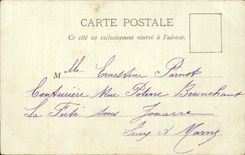 CARTE POSTALE
Ce côté est exclusivement réservé à l'adresse.
M lle Ernestine Parnot
Couturière Rue Petit
La Ferté sous Jouarre
Seine & Marne